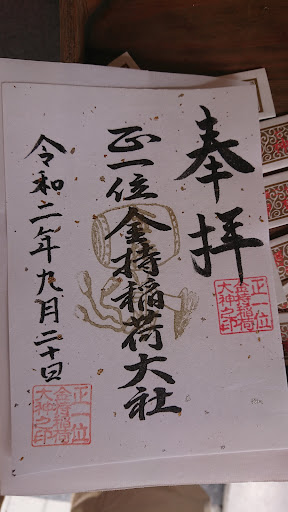 奉拝
正一位金持稲荷大社
令和二年九月二十日
正一位
金持稲荷
大神之印
正一位
金持稲荷
大神之印